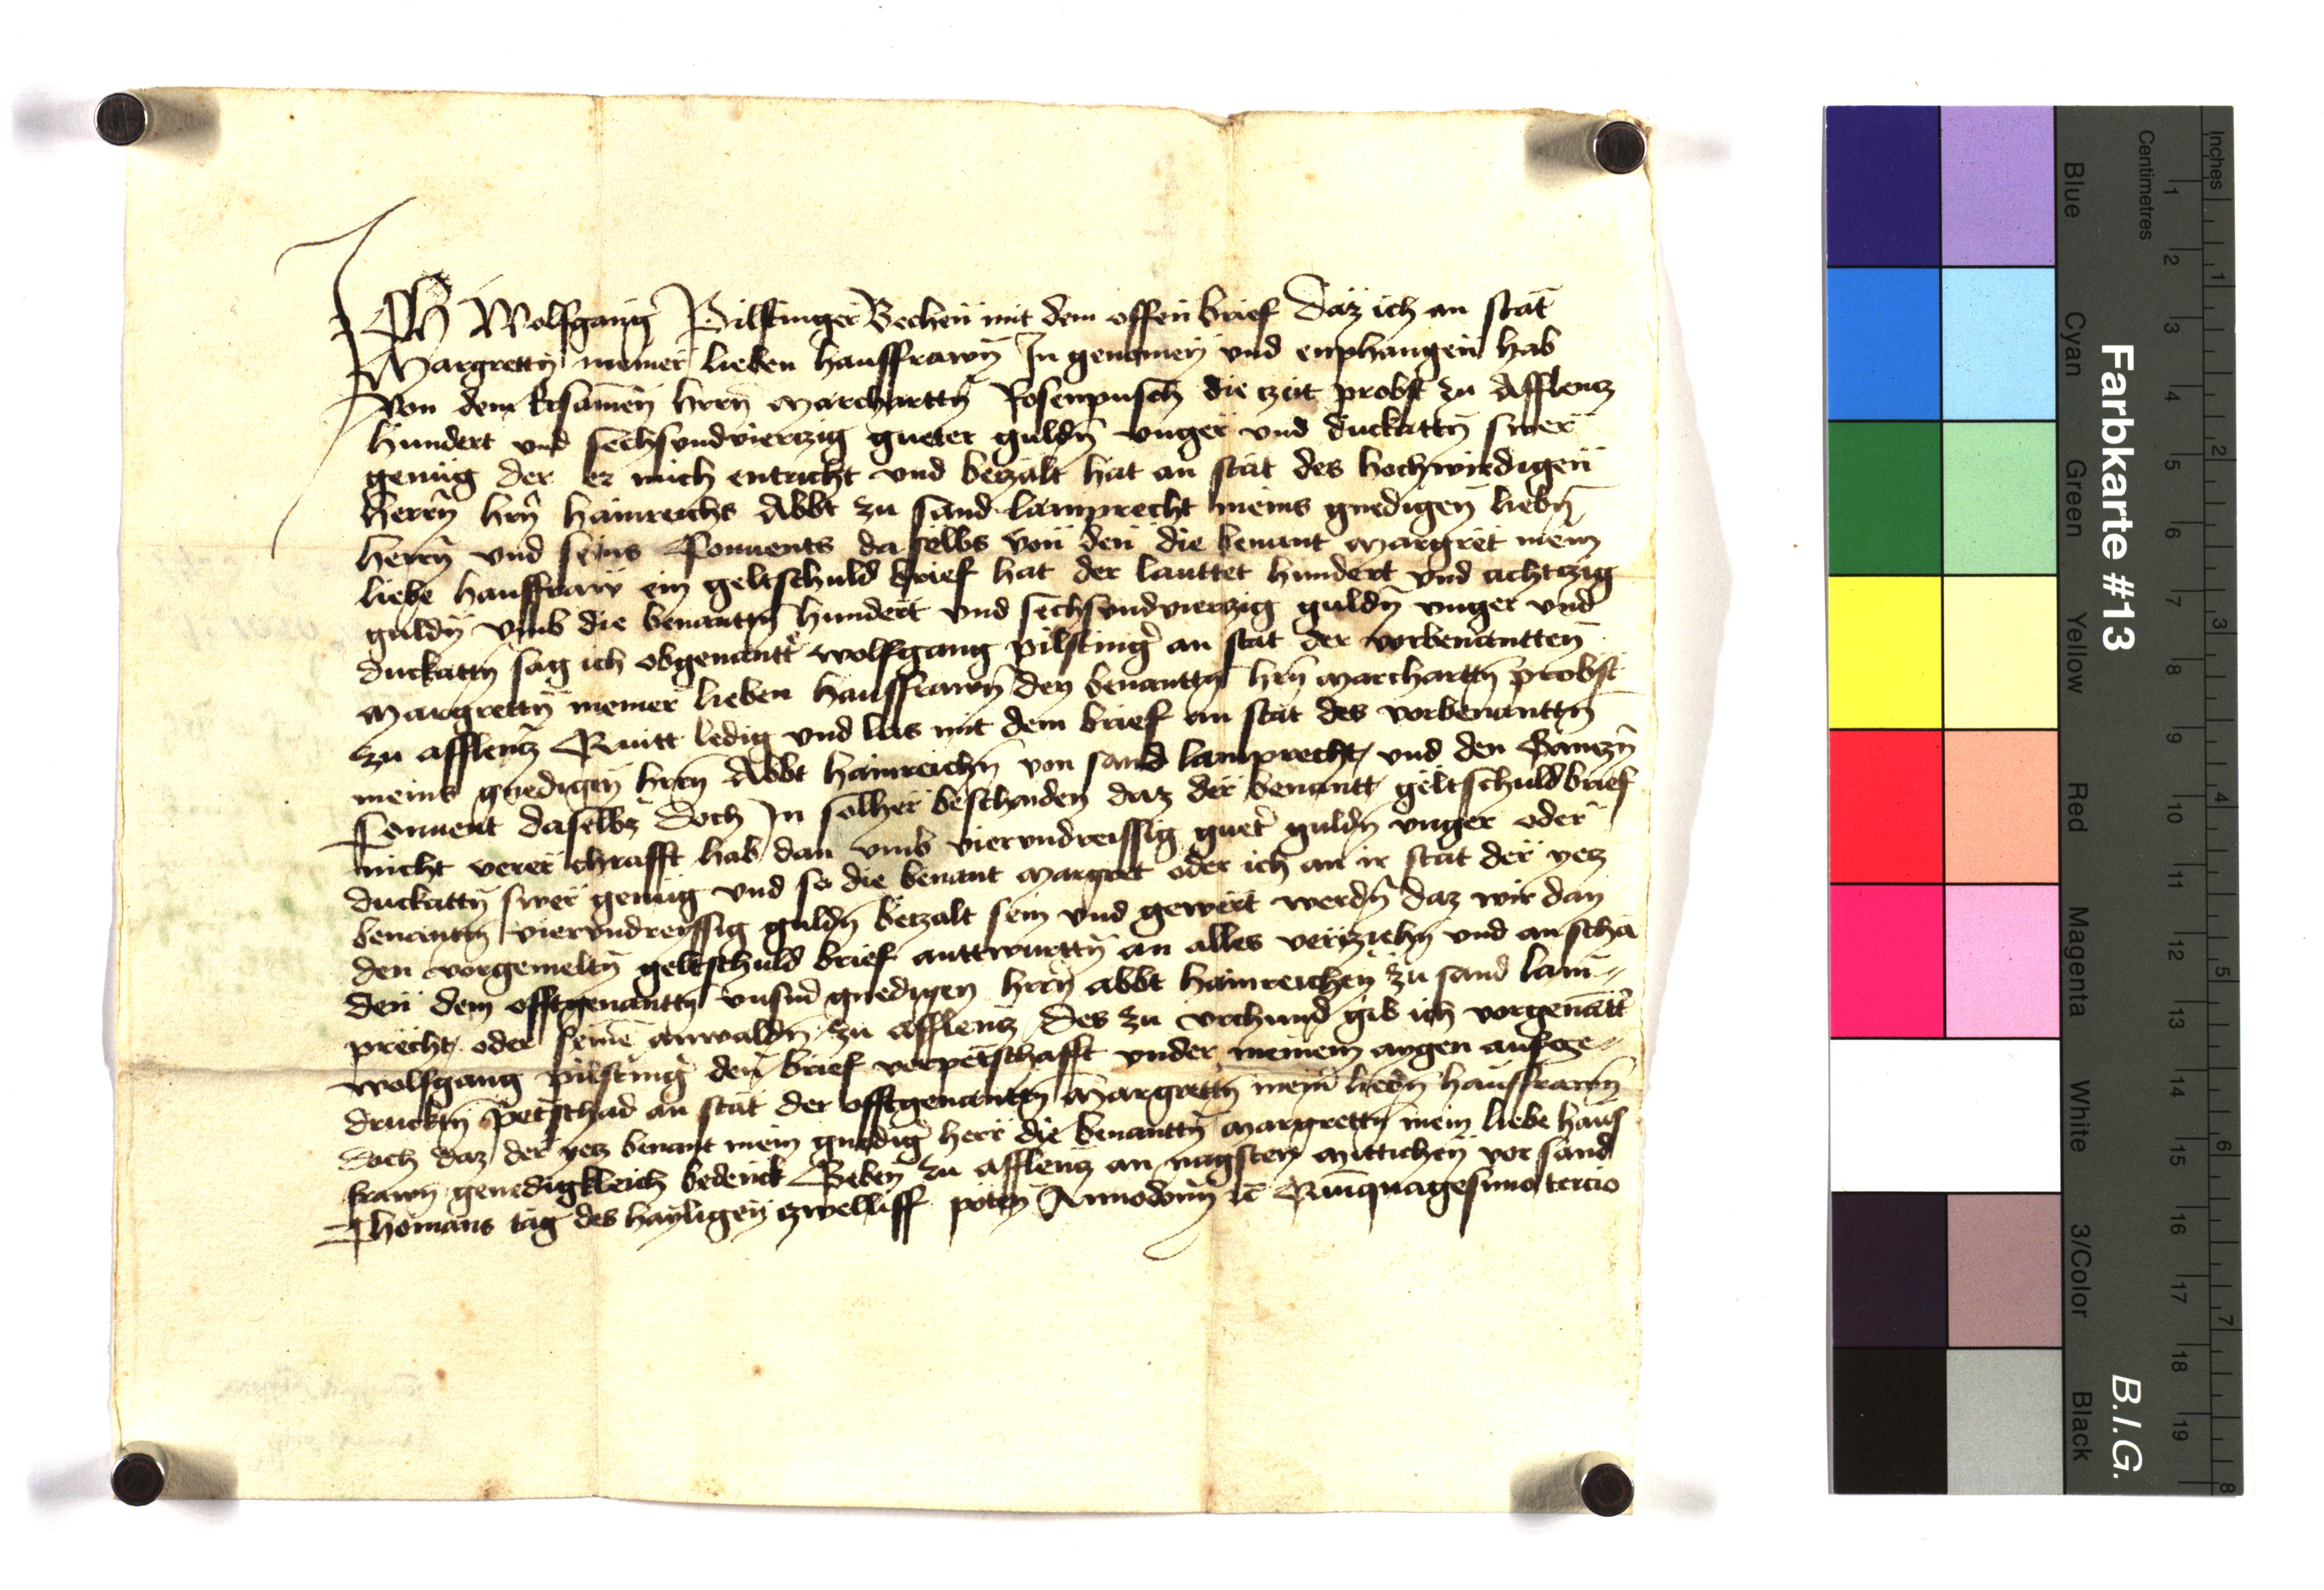 Ich Wolfgang Pilstinger Bechen mit dem offen brief daz ich an stat
Margrettn meiner lieben hausfrawn In genomen und enphangen hab
Von dem Ersamen hern Marcharttn Rosenpusch die zeit probst zu Afflencz
hundert und sechsundvierczig gueter guldn unger und duckattn swer
genug der er mich entricht und beczalt hat an stat des hochwirdigen
herrn hrn hainreichs Abbt zu sand lamprecht meins gnedigen liebn
herrn und seins Conuents daselbs von den die benant Margret mein
liebe hausfraw ein geltschuld brief hat der lauttet hundert und achczig
guldn umb die benanttn hundert und sechsundvierczig guldn unger und
duckattn sag ich obgenantt wolfgang pilsting an stat der vorbenantten
Margrettn meiner lieben hausfrawn den benanttn hrn marcharttn probst
zu afflencz Quitt ledig und las mit dem brief an stat des vorbenanttn
meins gnedigen hrn Abbt hainreichn von sand lamprecht und den Ganczn
Conuent daselbs doch In solher beschaiden daz der benantt geltschuldbrief
nicht verer chrafft hab dan umb vierundreissig guet guldn unger oder
duckattn swer genug und so die benant margret oder ich an ir stat der yecz
benantn vierundreyssig guldn beczalt sein und gewert werdn daz wir dan
den vorgemeltn geltschuld brief anttwurttn an alles verziehn und an scha
den dem offtgenanttn unserm gnedigen hrrn abbt hainreichen zu sand lam-
precht oder seinē anwaldn zu afflencz des zu urchund gib ich vorgenātt
wolfgang pilsting den brief verpetschafft under meinem aygen aufge-
drucktn petschad an stat der offtgenantn Margrettn meiner liebn hausfrawn
doch daz der yecz benant mein gnedig herr die benanttn margrettn mein liebe haus
frawn genedigkleich bedenck Geben zu afflencz an nagsten mittichen vor sand
Thomans tag des hayligen zwelliff poten Annodomini ꝛc Quinquagesimo tercio
Farbkarte #13
B.I.G.
Inches
Centimetres
1 2 3 4 5 6 7 8 9 10 11 12 13 14 15 16 17 18 19
1 2 3 4 5 6 7 8
Blue Cyan Green Yellow Red Magenta White 3/Color Black